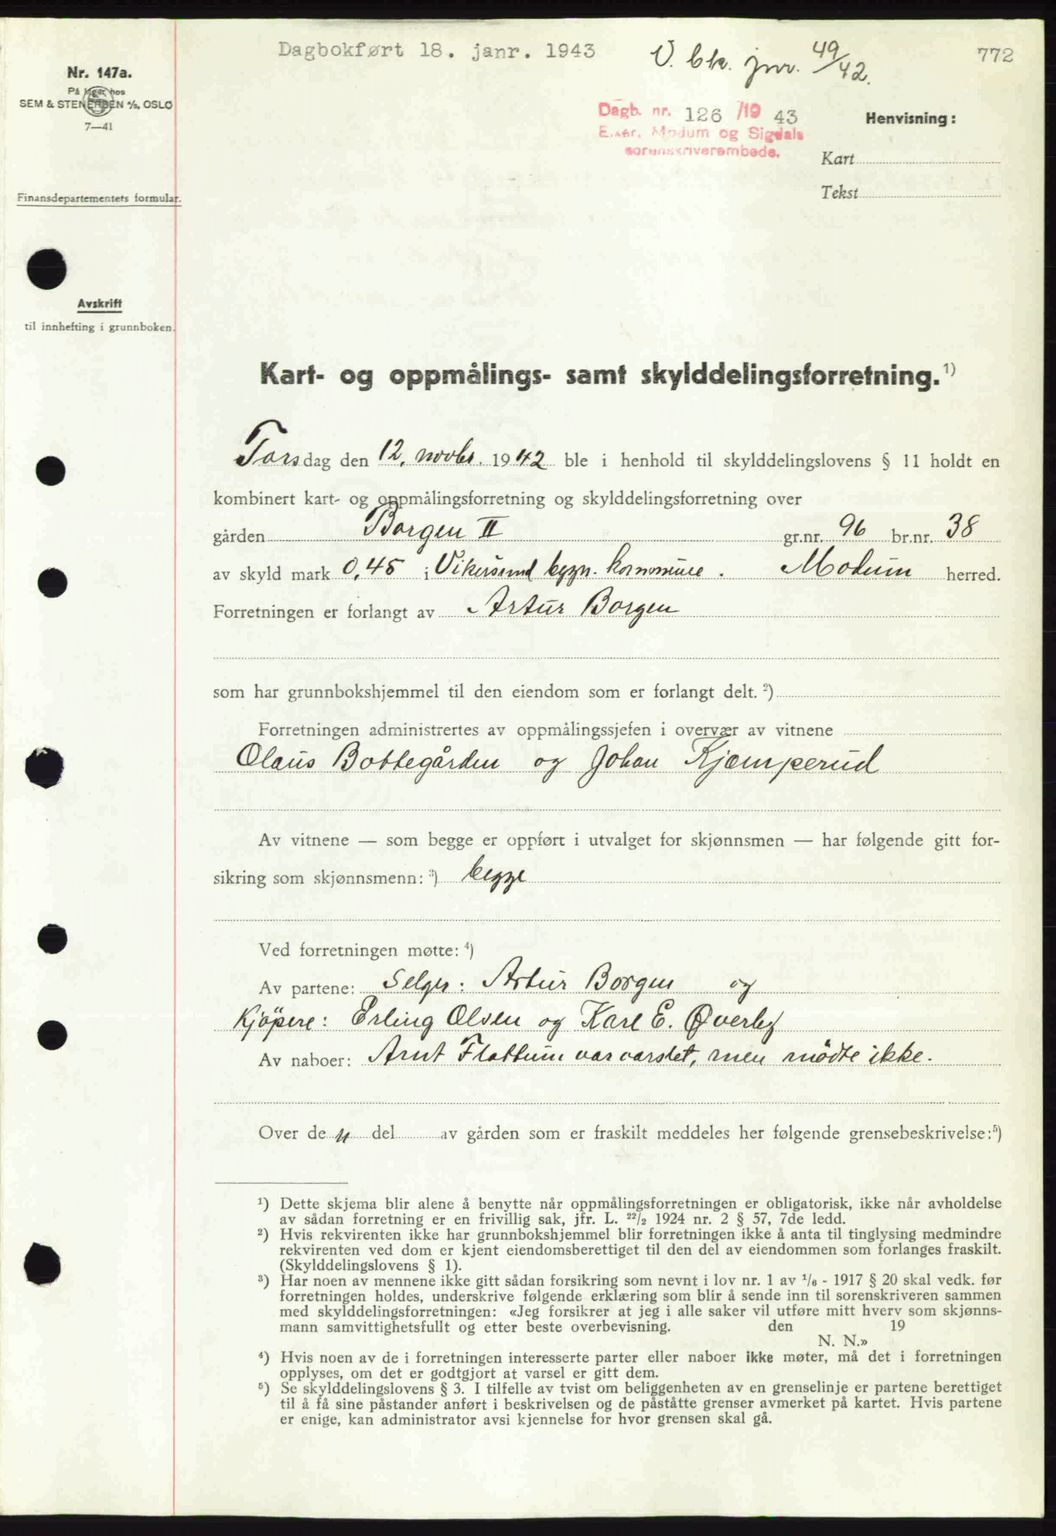 Dagbokført 18. janr. 1943
V. bk. jnr. 49/42.
772
Nr. 147a.
På lager hos
SEM & STENERSEN A/S, OSLO
7—41
Dagb. nr. 126 /19 43
Eiker, Modum og Sigdals
sorenskriverembede.
Henvisning:
Kart
Tekst
Finansdepartementets formular.
Avskrift
til innhefting i grunnboken.
Kart- og oppmålings- samt skylddelingsforretning.¹)
Torsdag den 12. novbr. 1942 ble i henhold til skylddelingslovens § 11 holdt en
kombinert kart- og oppmålingsforretning og skylddelingsforretning over
gården Borgen II gr.nr. 96 br.nr. 38
av skyld mark 0,45 i Vikersund bygn. kommune. Modum herred.
Forretningen er forlangt av Artur Borgen
som har grunnbokshjemmel til den eiendom som er forlangt delt. ²)
Forretningen administrertes av oppmålingssjefen i overvær av vitnene
Olaus Bottegården og Johan Kjæmperud
Av vitnene — som begge er oppført i utvalget for skjønnsmen — har følgende gitt for-
sikring som skjønnsmenn: ³) begge
Ved forretningen møtte: ⁴)
Av partene: Selger: Artur Borgen og
Kjøpere: Erling Olsen og Karl E. Øverby
Av naboer: Arnt Flattum var varslet, men mödte ikke.
Over de n del av gården som er fraskilt meddeles her følgende grensebeskrivelse: ⁵)
¹) Dette skjema blir alene å benytte når oppmålingsforretningen er obligatorisk, ikke når avholdelse
av sådan forretning er en frivillig sak, jfr. L. 22/2 1924 nr. 2 § 57, 7de ledd.
²) Hvis rekvirenten ikke har grunnbokshjemmel blir forretningen ikke å anta til tinglysing medmindre
rekvirenten ved dom er kjent eiendomsberettiget til den del av eiendommen som forlanges fraskilt.
(Skylddelingslovens § 1).
³) Har noen av mennene ikke gitt sådan forsikring som nevnt i lov nr. 1 av 1/6 - 1917 § 20 skal vedk. før
forretningen holdes, underskrive følgende erklæring som blir å sende inn til sorenskriveren sammen
med skylddelingsforretningen: «Jeg forsikrer at jeg i alle saker vil utføre mitt hverv som skjønns-
mann samvittighetsfullt og etter beste overbevisning. den 19
N. N.»
⁴) Hvis noen av de i forretningen interesserte parter eller naboer ikke møter, må det i forretningen
opplyses, om det er godtgjort at varsel er gitt dem.
⁵) Se skylddelingslovens § 3. I tilfelle av tvist om beliggenheten av en grenselinje er partene berettiget
til å få sine påstander anført i beskrivelsen og de påståtte grenser avmerket på kartet. Hvis partene
er enige, kan administrator avsi kjennelse for hvor grensen skal gå.